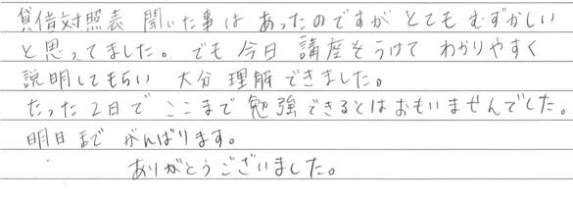 貸借対照表 聞いた事は あったのですが とても むずかしい
と思ってました。でも 今日 講座をうけて わかりやすく
説明してもらい 大分 理解 できました。
たった 2日で ここまで 勉強できるとは おもいませんでした。
明日まで がんばります。
ありがとうございました。